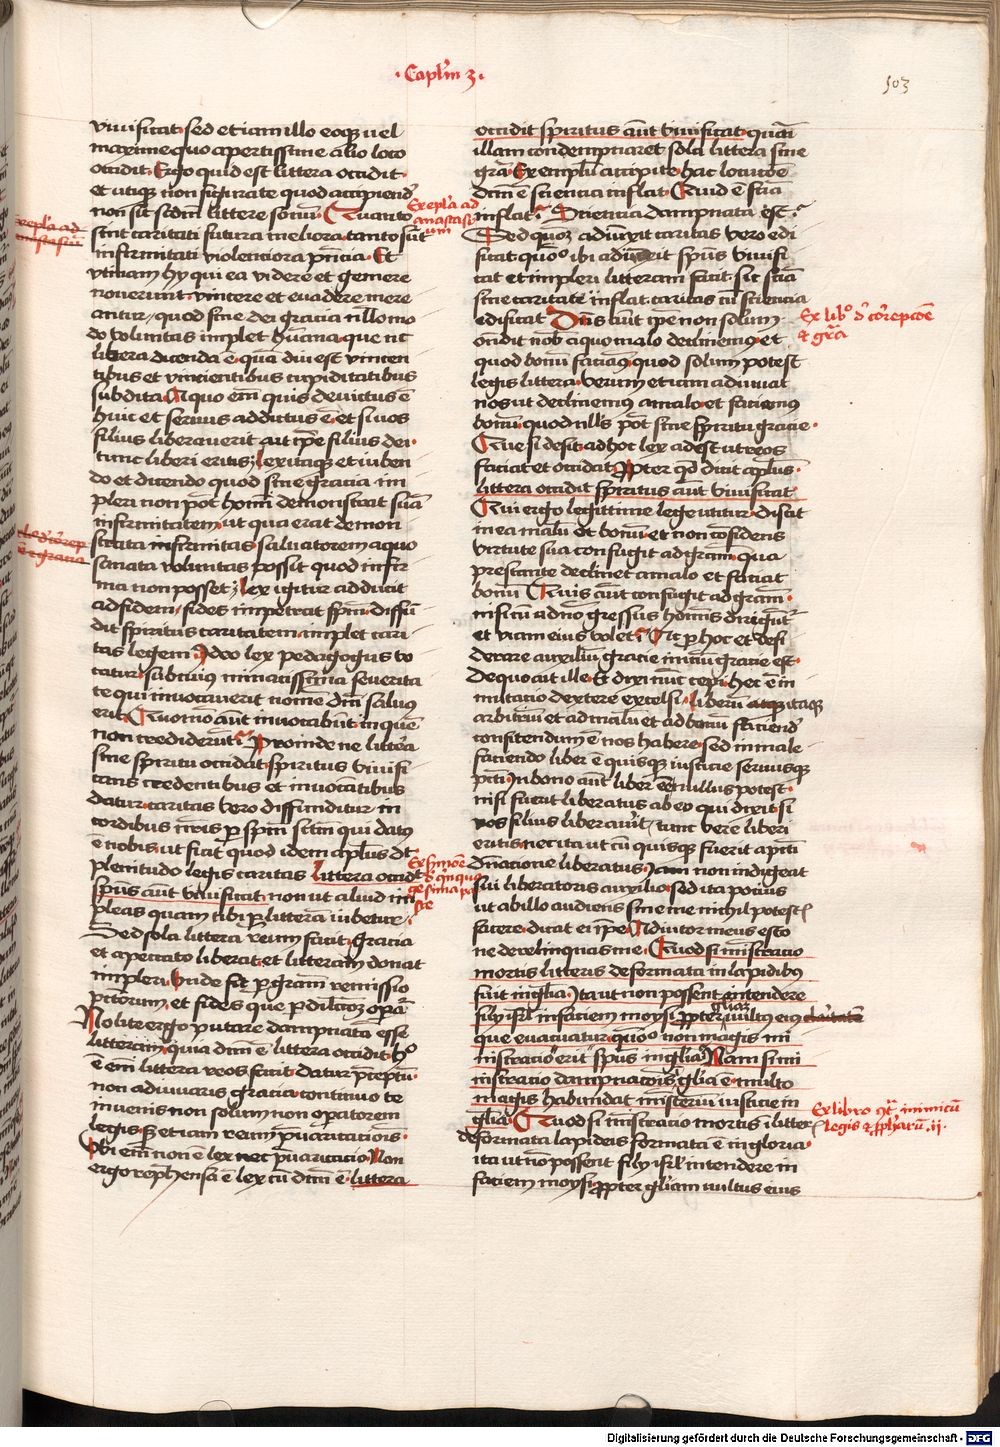 Caplm 3
503
viuificat sed etiam illo eoque uel
maxime quo apertissime alio loco
occidit Ergo quid est littera occidit
et utique non figurate quod accipiend
non sit sedm littere sonum Quanto
Ex epla ad
anastasi
um
sint caritati futura meliora tanto sunt
infirmitati violentiora pricia Et
vtinam hy qui ea videre et gemere
nouerunt vincere et euadere mere
antur quod sine dei gracia nullo mo
do voluntas implet humana que nec
libera dicenda e qua diu est vincen
tibus et vincientibus cupiditatibus
subdita A quo em quis deuictus e
huic et seruus addictus e et si uos
filius liberauerit ait ipe filius dei
tunc liberi eritis lex itaque et iuben
do et dicendo quod sine gracia im
pleri non pot homi demonstrat sua
infirmitatem ut qua erat demon
strata infirmitas saluatorem a quo
sanata voluntas possit quod infir
ma non posset lex igitur adducit
ad fidem fides impetrat spm diffu
dit spiritus caritatem implet cari
tas legem Ideo lex pedagogus vo
catur sub cuius minacissima seuerita
te qui inuocauerit nomen dni saluus
erit Quomo aut inuocabunt in quem
non crediderunt Proinde ne littera
sine spiritu occidat spiritus viuifi
cans credentibus et inuocantibus
datur caritas vero diffunditur in
cordibus nris per spm sctm qui datus
e nobis ut fiat quod idem aplus dt
plenitudo legis caritas littera occidit
Ex smone
de quinqua
gesima pa
spus aut viuificat non ut aliud im
pleas quam tibi per litteram iubetur
Sed sola littera reum facit gracia
et a peccato liberat et litteram donat
impleri Vnde fit per gram remissio
pctorum et fides que per dilcoem opera
Nolite ergo putare dampnata esse
litteram quia dcm e littera occidit hoc
e em littera reos facit datur preceptum
non adiuuaris gracia continuo te
inuenis non solum non operatorem
legis sed etiam reum preuaricacionis
Vbi em non e lex nec preuaricacio Non
ergo reprehensa e lex cu dcm e littera
occidit spiritus aut viuificat quasi
illam condempnaret sola littera sine
gra Exemplu accipite hac locucoe
dcm e sciencia inflat Quid e scia
inflat Sciencia dampnata est
Sed quoque adiunxit caritas vero edi
ficat quomo ibi adiunxit spus viuifi
cat et impleri litteram facit sic scia
sine caritate inflat caritas cu sciencia
edificat Dns aut ipe non solum
Ex libro de correpcoe
et gra
ostendit nob a quo malo declinemus et
quod bonum faciamus quod solum potest
legis littera verum etiam adiuuat
nos ut declinemus a malo et faciamus
bonum quod nullus pot sine spiritu gracie
Que si desit ad hoc lex adest ut reos
faciat et occidat propter qd dicit aplus
littera occidit spiritus aut viuificat
Qui ergo legittime lege utitur discit
in ea malum et bonum et non confidens
virtute sua confugit ad gram qua
prestante declinet a malo et faciat
bonum Quis aut confugit ad gram
nisi cum a dno gressus hominis dirigunt
et viam eius volet Ac per hoc et desi
derare auxilium gracie inicium gracie est
De quo ait ille Et dixi nunc cepi hec e in
mutacio dextere excelsi liberum itaque
arbitrium et ad malum et ad bonum faciend
confitendum e nos habere sed in male
faciendo liber e quisque iusticie seruusque
pcti In bono aut liber esse nullus potest
nisi fuerit liberatus ab eo qui dixit si
vos filius liberauit tunc vere liberi
eritis nec ita ut cum quisque fuerit a pcti
dnacione liberatus iam non indigeat
sui liberatoris auxilio sed ita pocius
ut ab illo audiens sine me nichil potest
facere dicat ei ipe Adiutor meus esto
ne derelinquas me Quod si ministracio
mortis litteris deformata in lapidibus
fuit in glia Ita ut non possent intendere
filij isrl in faciem moysi propter gliam uultus eius
que euacuatur quomo non magis mi
nistracio erit spus in glia Nam si mi
nistracio dampnacois glia e multo
magis habundat misterium iusticie in
glia Quod si ministracio mortis i litter
Ex libro contra inimicum
legis et prophetarum ii
deformata lapideis formata e in gloria
ita ut no possent filij isrl intendere in
faciem moysi propter gliam uultus eius
Digitalisierung gefördert durch die Deutsche Forschungsgemeinschaft - DFG